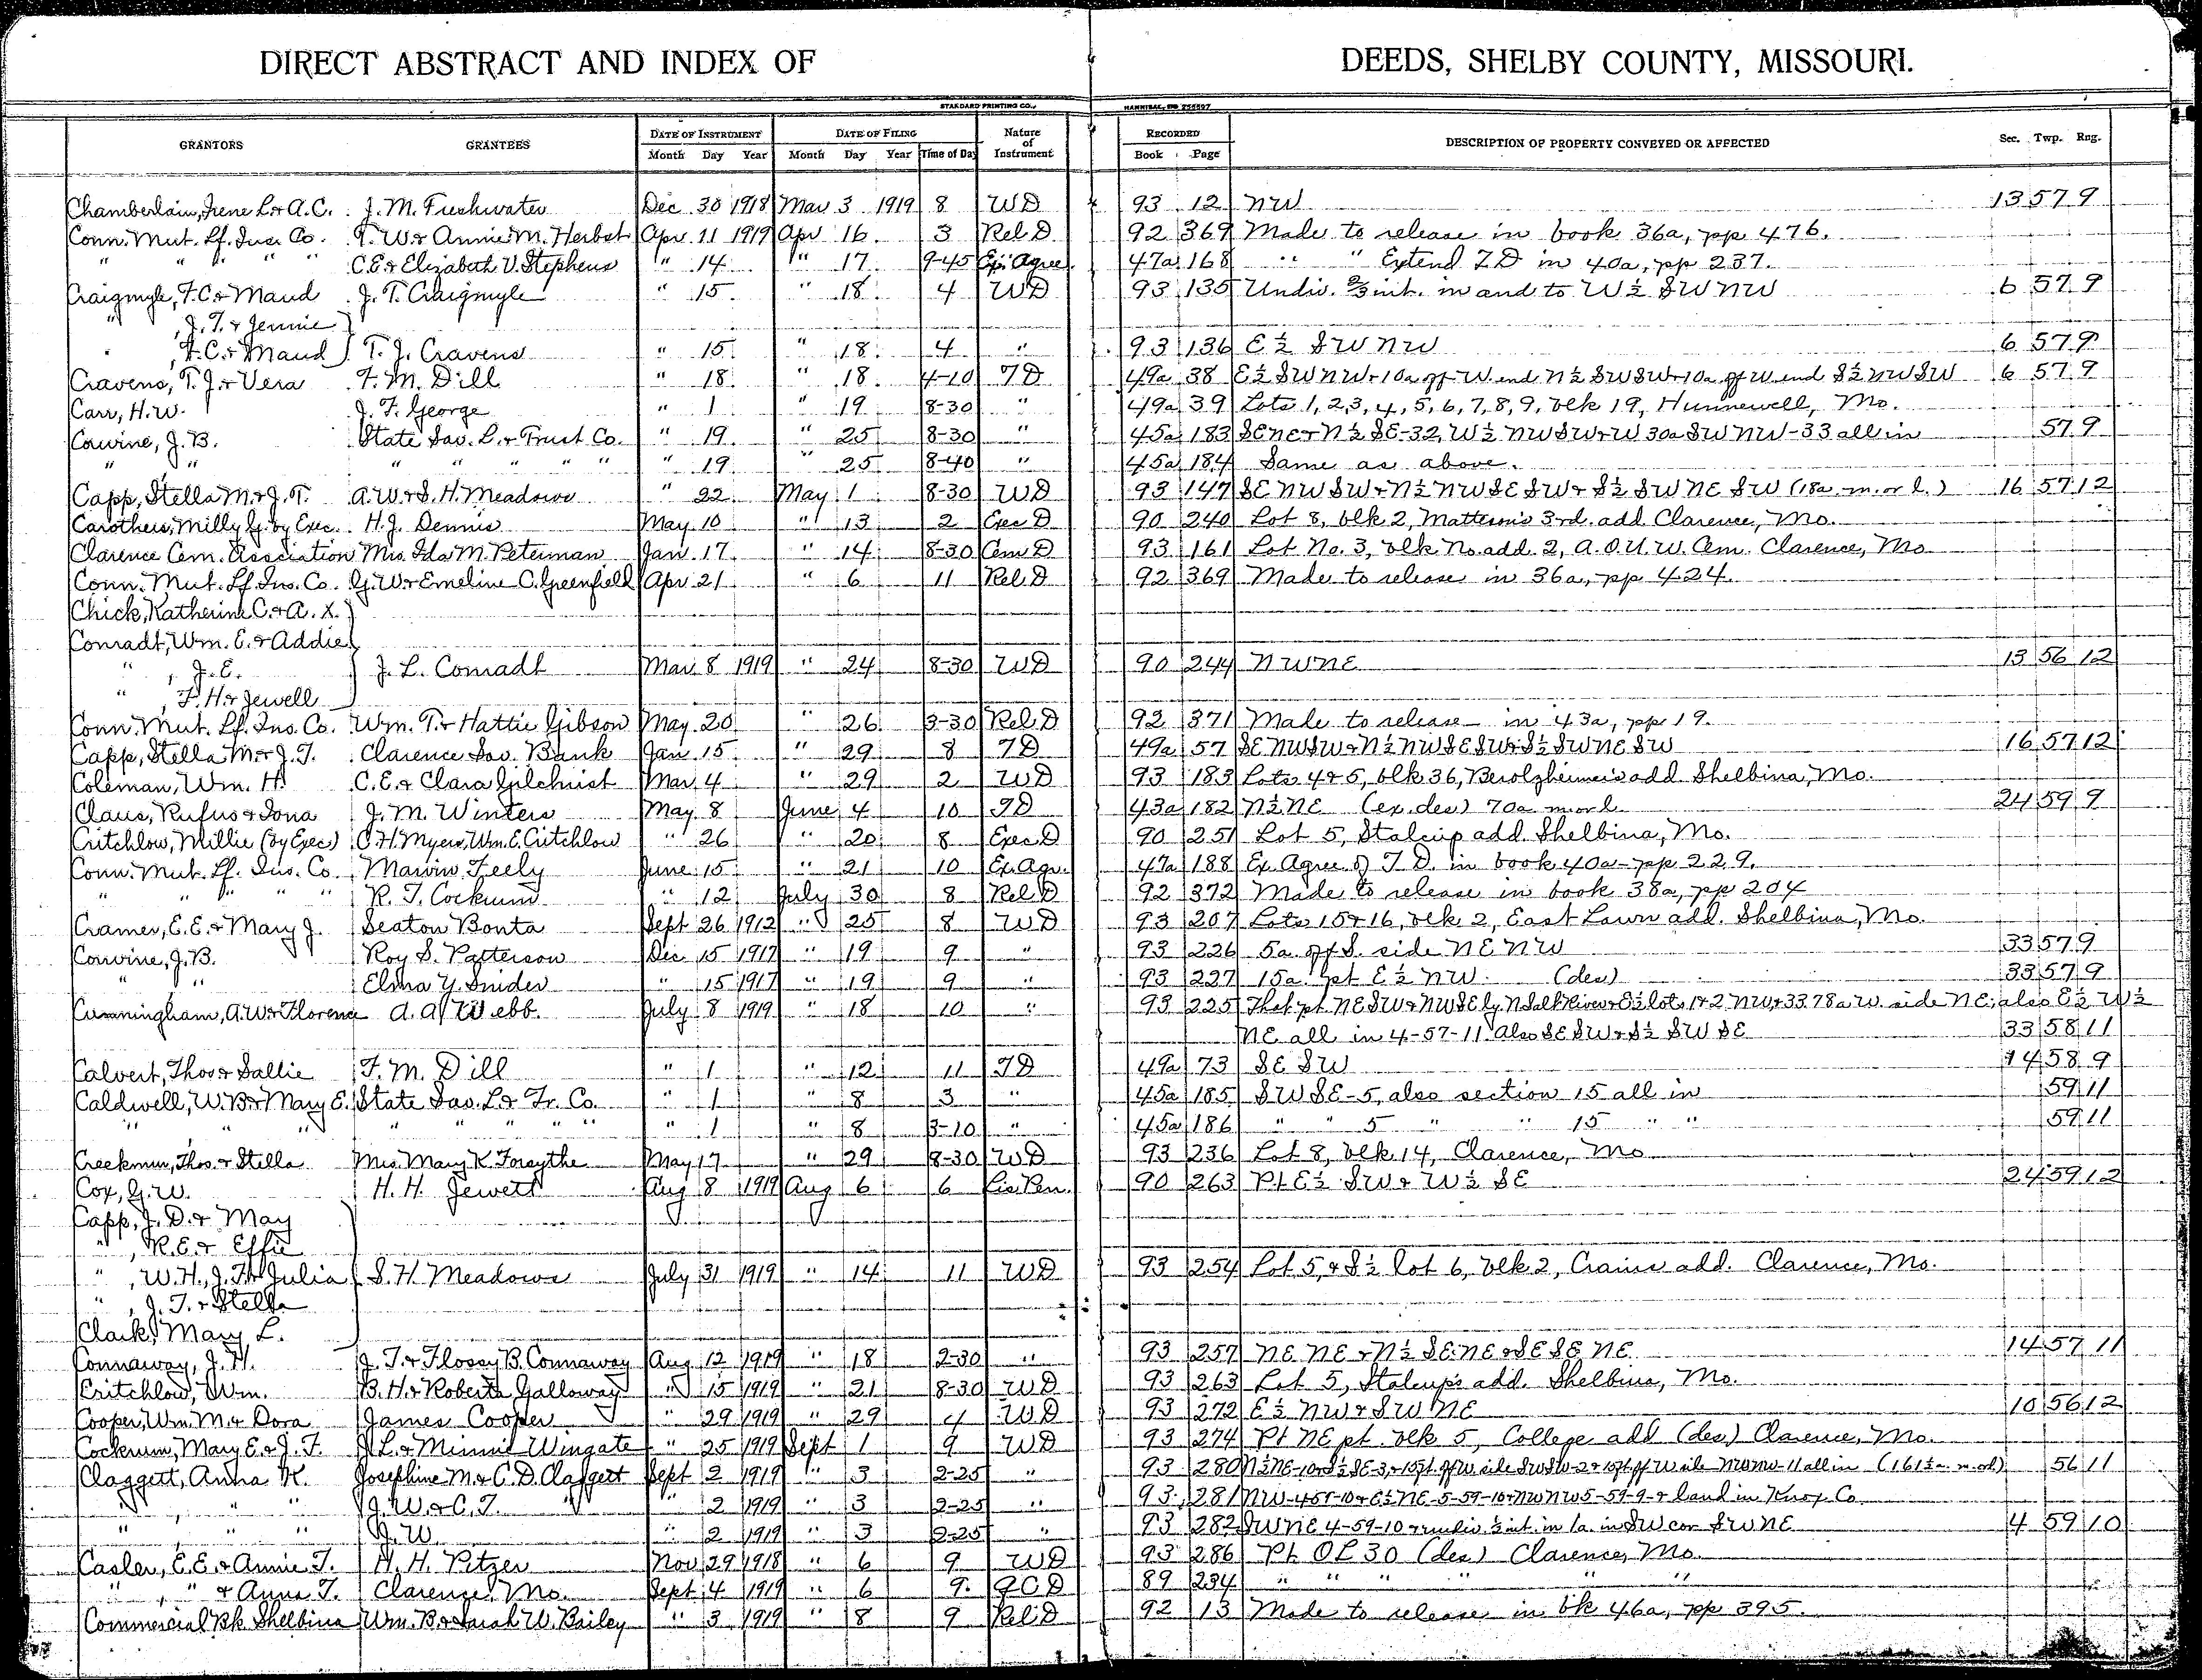 DIRECT ABSTRACT AND INDEX OF DEEDS, SHELBY COUNTY, MISSOURI.
STANDARD PRINTING CO., HANNIBAL, MO
GRANTORS GRANTEES DATE OF INSTRUMENT Month Day Year DATE OF FILING Month Day Year Time of Day Nature of Instrument RECORDED Book Page DESCRIPTION OF PROPERTY CONVEYED OR AFFECTED Sec. Twp. Rng.
Chamberlain, Irene L. & A.C. J. M. Freshwater Dec 30 1918 Mar 3 1919 8 WD 93 12 NW 13 57 9
Conn. Mut. Lf. Ins. Co. T. W. & Annie M. Herbst Apr 11 1919 Apr 16 3 Rel D 92 369 Made to release in book 36a, pp 476.
" " " " " C.E. & Elizabeth V. Stephens " 14 " 17 9-45 Ex. Agree. 47a 168 " " Extend TD in 40a, pp 237.
Craigmyle, F.C. & Maud J. T. Craigmyle " 15 " 18 4 WD 93 135 Undiv. 2/3 int. in and to W½ SW NW 6 57 9
" , J. T. & Jennie
" , F.C. & Maud T. J. Cravens " 15 " 18 4 " 93 136 E½ SW NW 6 57 9
Cravens, T. J. & Vera F. M. Dill " 18 " 18 4-10 TD 49a 38 E½ SW NW & 10a off W end N½ SW SW & 10a off W end S½ NW SW 6 57 9
Carr, H.W. J. F. George " 1 " 19 8-30 " 49a 39 Lots 1, 2, 3, 4, 5, 6, 7, 8, 9, blk 19, Hunnewell, Mo.
Corwine, J. B. State Sav. L. & Trust Co. " 19 " 25 8-30 " 45a 183 SE NE & N½ SE-32, W½ NW SW & W 30a SW NW-33 all in 57 9
" " " " " " " " 19 " 25 8-40 " 45a 184 Same as above.
Capp, Stella M. & J. T. A.W. & S. H. Meadows " 22 May 1 8-30 WD 93 147 SE NW SW & N½ NW SE SW & S½ SW NE SW (18a m. or l.) 16 57 12
Carothers, Milly G. by Exec. H. J. Dennis May 10 " 13 2 Exec D 90 240 Lot 8, blk 2, Matteson's 3rd. add Clarence, Mo.
Clarence Cem. Assciation Mrs. Ida M. Peterman Jan. 17 " 14 8-30 Cem D 93 161 Lot No. 3, blk No. add. 2, A.O.U.W. Cem. Clarence, Mo
Conn. Mut. Lf. Ins. Co. G. W. & Emeline C. Greenfield Apr 21 " 6 11 Rel D 92 369 Made to release in 36a, pp 424.
Chick, Katherine C. & A. X.
Conradt, Wm. E. & Addie
" , J. E. J. L. Conradt Mar. 8 1919 " 24 8-30 WD 90 244 NW NE 13 56 12
" , F. H. & Jewell
Conn. Mut. Lf. Ins. Co. Wm. T. & Hattie Gibson May 20 " 26 3-30 Rel D 92 371 Made to release in 43a, pp 19.
Capp, Stella M. & J. T. Clarence Sav. Bank Jan. 15 " 29 8 TD 49a 57 SE NW SW & N½ NW SE SW & S½ SW NE SW 16 57 12
Coleman, Wm. H. C. E. & Clara Gilchrist Mar. 4 " 29 2 WD 93 183 Lots 4 & 5, blk 36, Berolzheimer's add. Shelbina, Mo.
Claus, Rufus & Iona J. M. Winters May 8 June 4 10 TD 43a 182 N½ NE (ex. des) 70a m. or l. 24 59 9
Critchlow, Millie (by Exec) C.H. Myers, Wm. E. Critchlow " 26 " 20 8 Exec. D 90 251 Lot 5, Stalcup add. Shelbina, Mo.
Conn. Mut. Lf. Ins. Co. Marvin Feely June 15 " 21 10 Ex. Agr. 47a 188 Ex. Agree of T.D. in book 40a - pp 229.
" " " " " R. T. Cockrum " 12 July 30 8 Rel D 92 372 Made to release in book 38a, pp 204
Cramer, E. E. & Mary J. Seaton Bonta Sept 26 1912 " 25 8 WD 93 207 Lots 15 & 16, blk 2, East Lawn add. Shelbina, Mo.
Corwine, J. B. Roy S. Patterson Dec. 15 1917 " 19 9 " 93 226 5a. off S. side NE NW 33 57 9
" " Elma Y. Snider " 15 1917 " 19 9 " 93 227 15a. pt E½ NW (des) 33 57 9
Cunningham, A.W. & Florence A. A. Webb. July 8 1919 " 18 10 " 93 225 That pt NE SW & NW SE ly. N Salt River & E½ lots 1 & 2 NW, & 33.78a W. side NE; also E½ W½
NE all in 4-57-11. Also SE SW & S½ SW SE 33 58 11
Calvert, Thos. & Sallie F. M. Dill " 1 " 12 11 TD 49a 73 SE SW 14 58 9
Caldwell, W. B. & Mary E. State Sav. L. & Tr. Co. " 1 " 8 3 " 45a 185 SW SE-5, also section 15 all in 59 11
" " " " " " " " " 1 " 8 3-10 " 45a 186 " " 5 " " 15 " " 59 11
Creekmur, Thos. & Stella Mrs. Mary K. Forsythe May 17 " 29 8-30 WD 93 236 Lot 8, blk 14, Clarence, Mo
Cox, G. W. H. H. Jewett Aug 8 1919 Aug 6 6 Lis Pen. 90 263 Pt E½ SW & W½ SE 24 59 12
Capp, J. D. & May
" , R. E. & Effie
" , W. H., J. F. & Julia S. H. Meadows July 31 1919 " 14 11 WD 93 254 Lot 5, & S½ lot 6, blk 2, Crains add. Clarence, Mo.
" , J. T. & Stella
Clark, Mary L.
Connaway, J. H. J. T. & Flossy B. Connaway Aug 12 1919 " 18 2-30 " 93 257 NE NE & N½ SE NE & SE SE NE 14 57 11
Critchlow, Wm. B. H. & Roberta Galloway " 15 1919 " 21 8-30 WD 93 263 Lot 5, Stalcup's add. Shelbina, Mo.
Cooper, Wm. M. & Dora James Cooper " 29 1919 " 29 4 WD 93 272 E½ NW & SW NE 10 56 12
Cockrum, Mary E. & J. F. J. L. & Minnie Wingate " 25 1919 Sept 1 9 WD 93 274 Pt NE pt. blk 5, College add (des) Clarence, Mo.
Claggett, Anna K. Josephine M. & C. D. Claggett Sept 2 1919 " 3 2-25 " 93 280 N½ NE-10 & S½ SE-3, & 15ft. off W side SW SW-2 & 15ft off W side NW NW-11 all in (161½a m. or l.) 56 11
" " " J. W. & C. T. " " 2 1919 " 3 2-25 " 93 281 NW-4-59-10 & E½ NE-5-59-10 & NW NW 5-59-9 & land in Knox Co.
" " " J. W. " 2 1919 " 3 2-25 " 93 282 SW NE 4-59-10 & undiv. ½ int. in 1a. in SW cor SW NE 4 59 10
Casler, E. E. & Annie T. H. H. Pitzer Nov 29 1918 " 6 9 WD 93 286 Pt. OL 30 (des) Clarence, Mo.
" " & Anna T. Clarence, Mo. Sept 4 1919 " 6 9 QCD 89 234 " " " " " "
Commercial Bk. Shelbina Wm. B. & Sarah W. Bailey " 3 1919 " 8 9 Rel D 92 13 Made to release in bk 46a, pp 395.